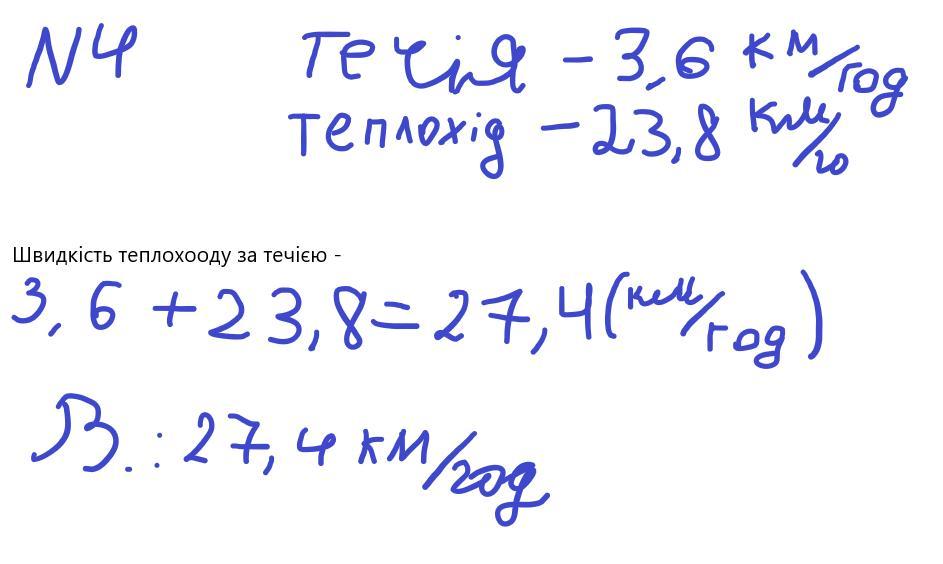 N4
Течія - 3,6 км/год
теплохід - 23,8 км/го
Швидкість теплохооду за течією -
3,6 + 23,8 = 27,4 (км/год)
В.: 27,4 км/год